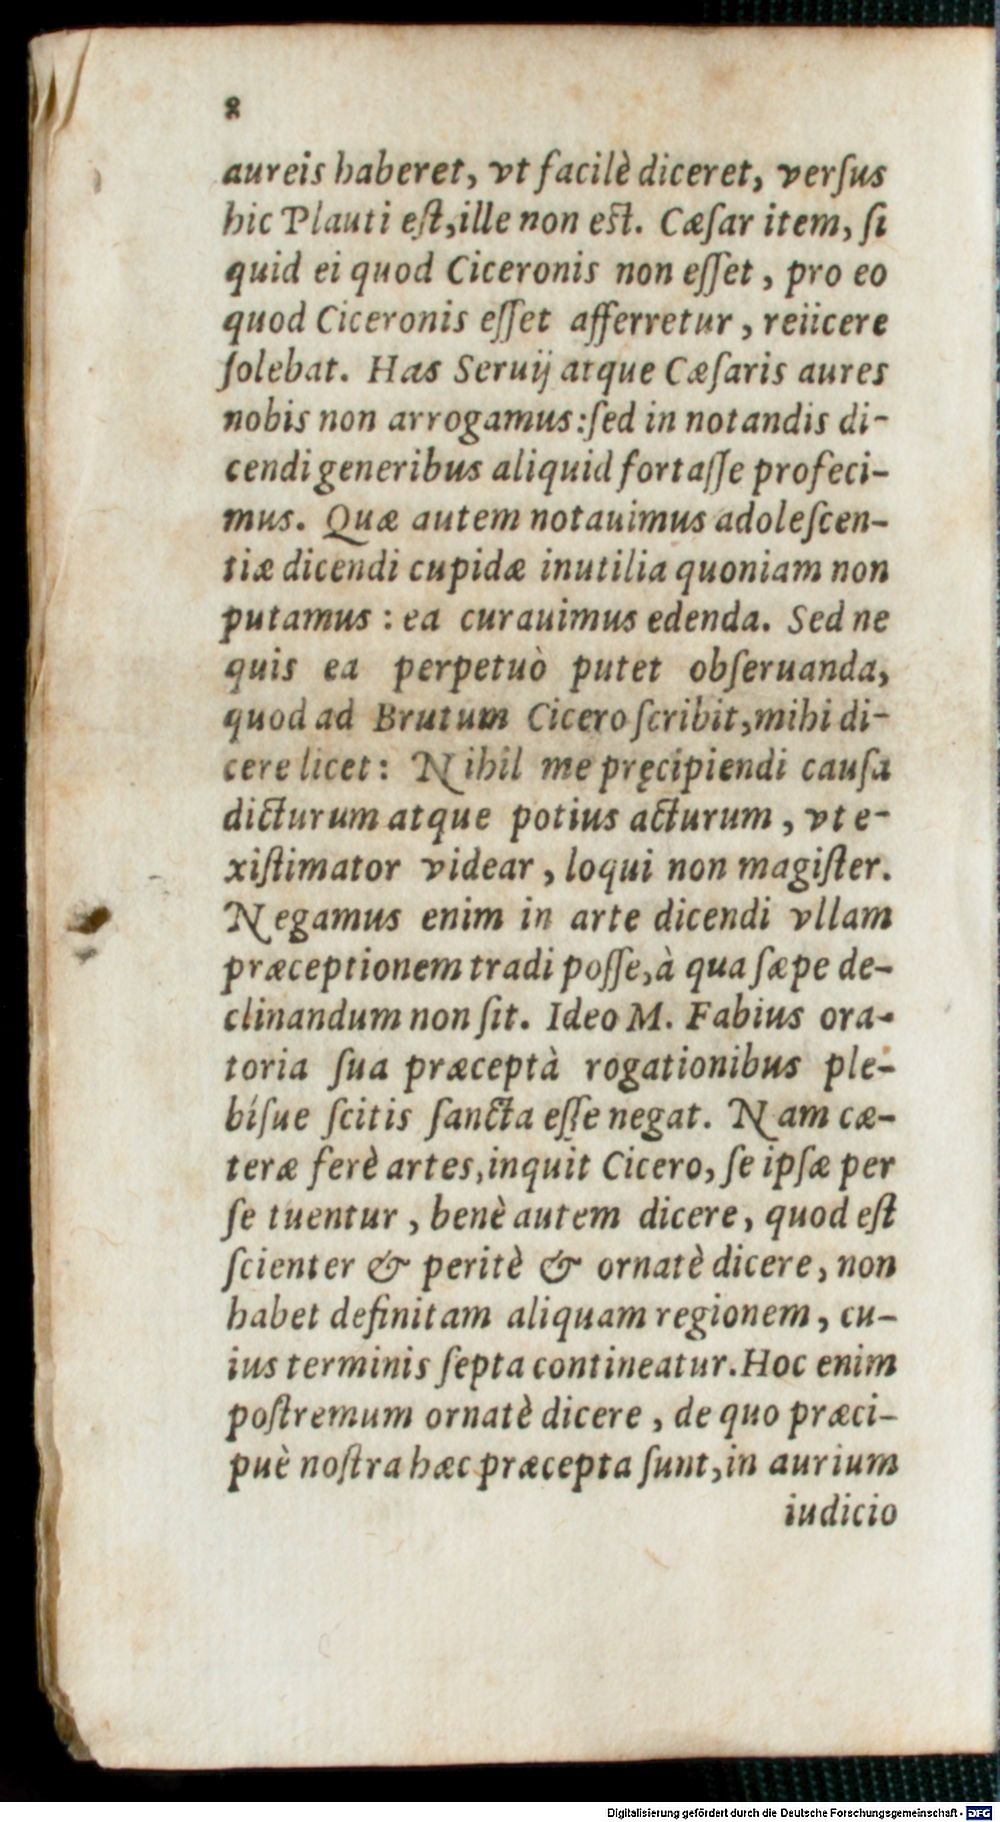 8
aureis haberet, vt facilè diceret, verſus
hic Plauti eſt,ille non eſt. Cæſar item, ſi
quid ei quod Ciceronis non eſſet, pro eo
quod Ciceronis eſſet afferretur, reiicere
ſolebat. Has Seruij atque Cæſaris aures
nobis non arrogamus:ſed in notandis di-
cendi generibus aliquid fortaſſe profeci-
mus. Quæ autem notauimus adoleſcen-
tiæ dicendi cupidæ inutilia quoniam non
putamus : ea curauimus edenda. Sed ne
quis ea perpetuò putet obſeruanda,
quod ad Brutum Cicero ſcribit,mihi di-
cere licet: Nihil me pręcipiendi cauſa
dicturum atque potius acturum, vt e-
xiſtimator videar, loqui non magiſter.
Negamus enim in arte dicendi vllam
præceptionem tradi poſſe,à qua ſæpe de-
clinandum non ſit. Ideo M. Fabius ora-
toria ſua præceptà rogationibus ple-
biſue ſcitis ſancta eſſe negat. Nam cæ-
teræ ferè artes,inquit Cicero, ſe ipſæ per
ſe tuentur, benè autem dicere, quod eſt
ſcienter & peritè & ornatè dicere, non
habet definitam aliquam regionem, cu-
ius terminis ſepta contineatur.Hoc enim
poſtremum ornatè dicere, de quo præci-
puè noſtra hæc præcepta ſunt,in aurium
iudicio
Digitalisierung gefördert durch die Deutsche Forschungsgemeinschaft - DFG